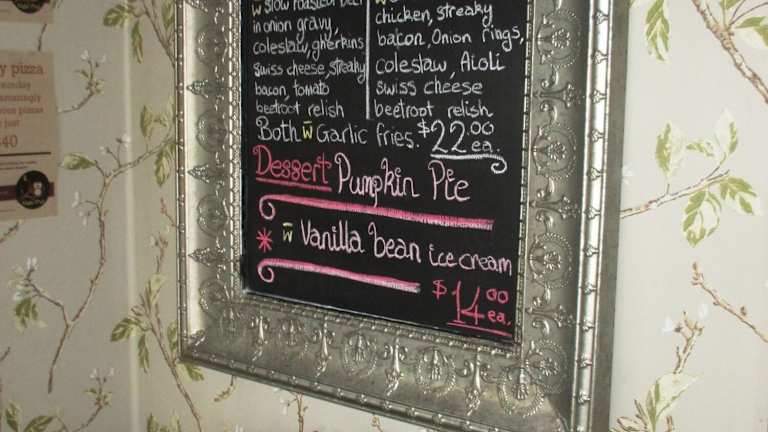 w slow roasted beef
in onion gravy,
coleslaw, gherkins
swiss cheese, streaky
bacon, tomato
beetroot relish
chicken, streaky
bacon, Onion rings,
coleslaw, Aioli
swiss cheese
beetroot relish
Both w Garlic fries. $22.00 ea.
Dessert Pumpkin Pie
* w Vanilla bean ice cream
$14.00 ea.
y pizza
just
40